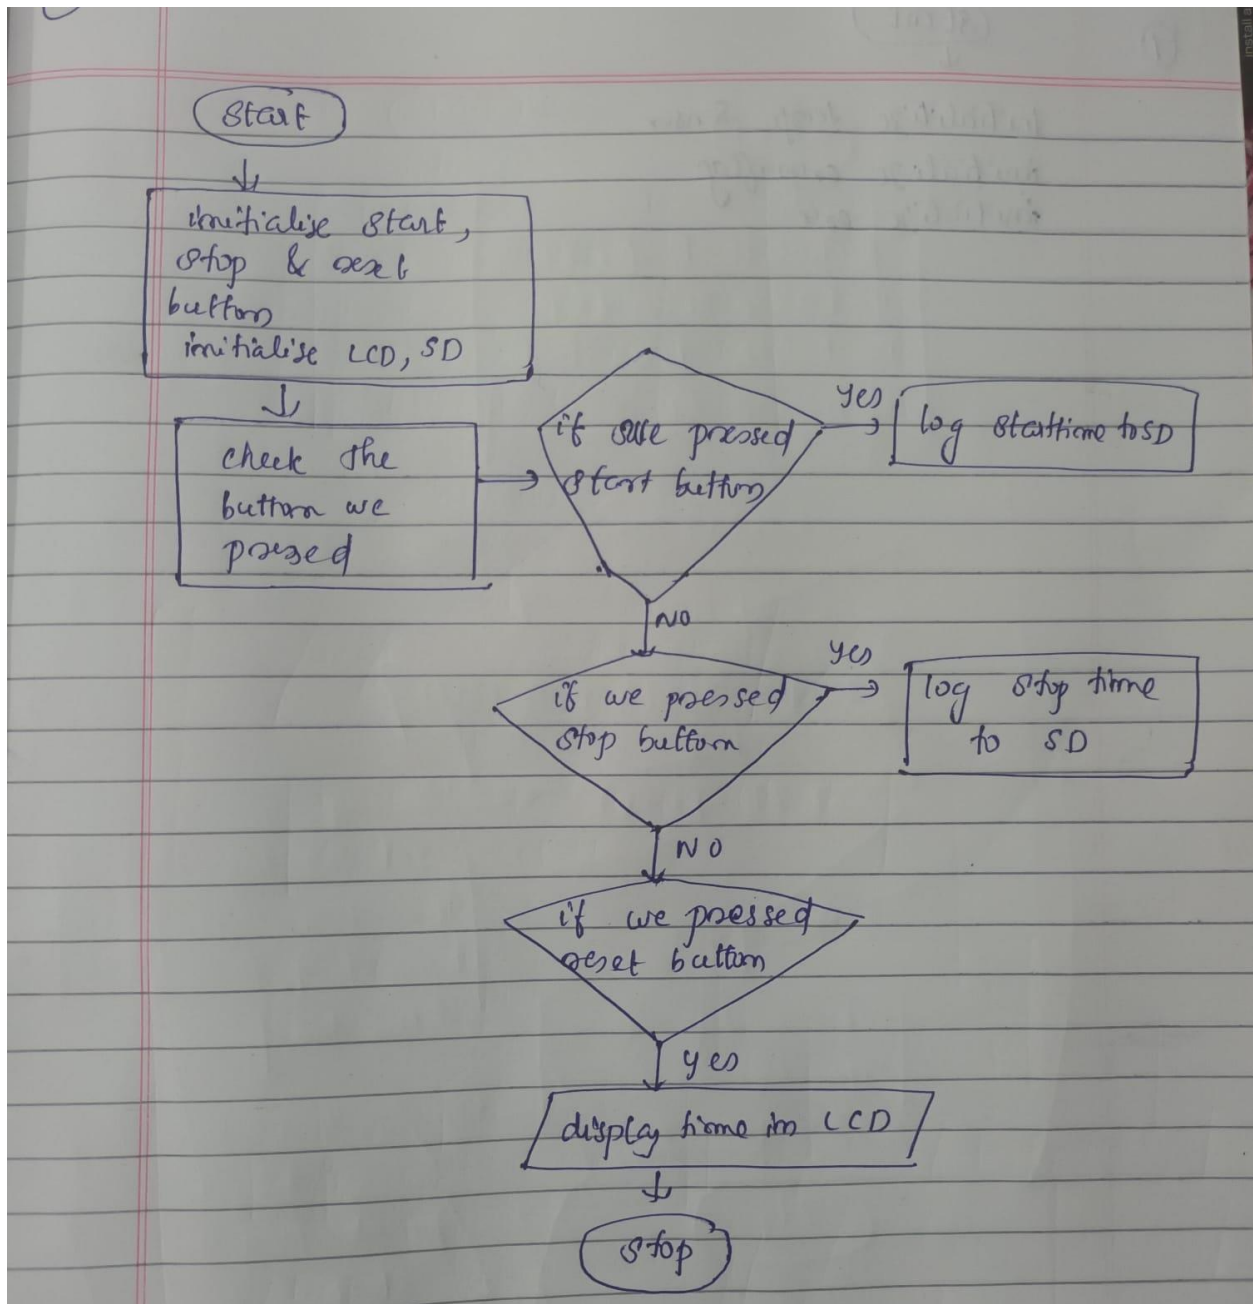 Start
initialise start,
stop & reset
button
initialise LCD, SD
check the
button we
pressed
if we pressed
start button
Yes
log starttime to SD
NO
if we pressed
stop button
Yes
log stop time
to SD
NO
if we pressed
reset button
yes
display time in LCD
stop